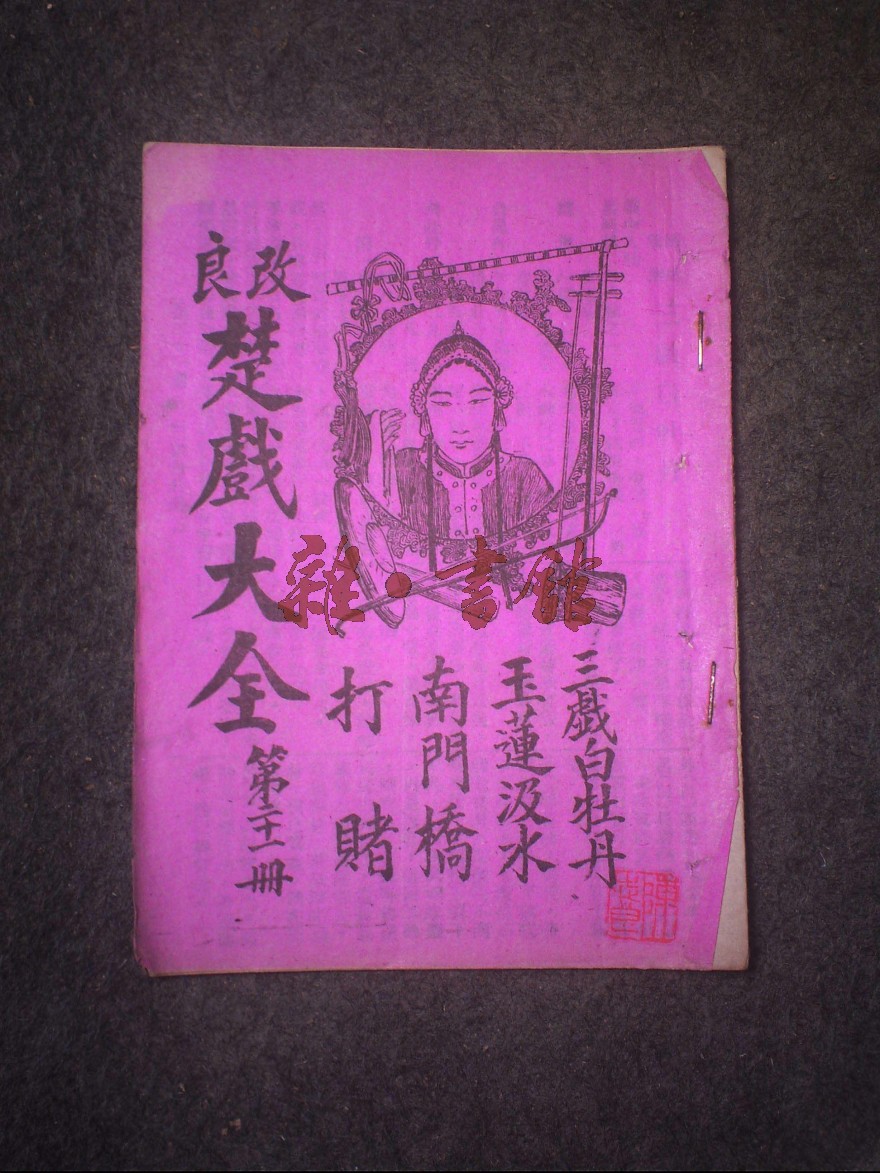 改良
楚戲大全
第二十一冊
三戯白牡丹
玉蓮汲水
南門橋
打賭
雜·書館